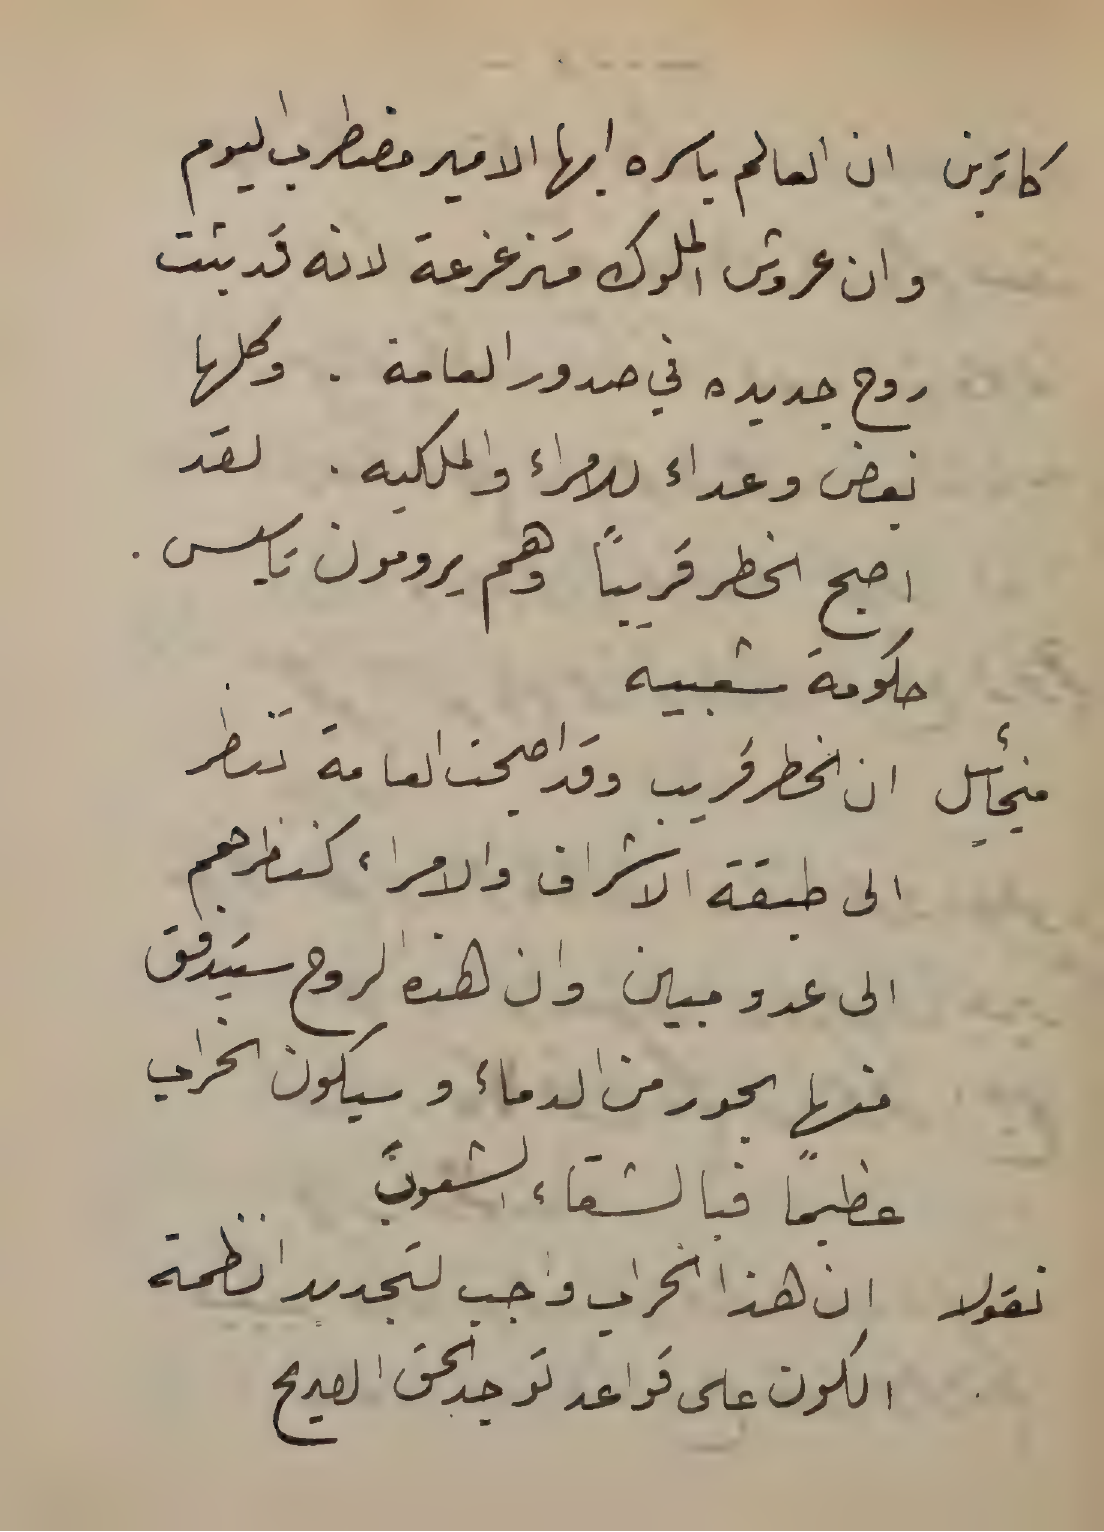 كاترين ان العالم باسره ايها الامير مضطرب اليوم
وان عروش الملوك متزعزعة لانه قد بثت
روح جديده في صدور العامة . وكلها
بغض وعداء للامراء والملكيه . لقد
اصبح الخطر قريباً وهم يرومون تاسيس .
حكومة شعبيه
ميخائيل ان الخطر قريب وقد اصبحت العامة تنظر
الى طبقة الاشراف والامراء كنظرهم
الى عدو مبين وان هذه الروح ستيدفق
منها بحور من الدماء وسيكون الخراب
عظيماً فيا لشقاء الشعوب
نقولا ان هذا الخراب واجب لتجديد انظمة
الكون على قواعد توجد الحق الصريح